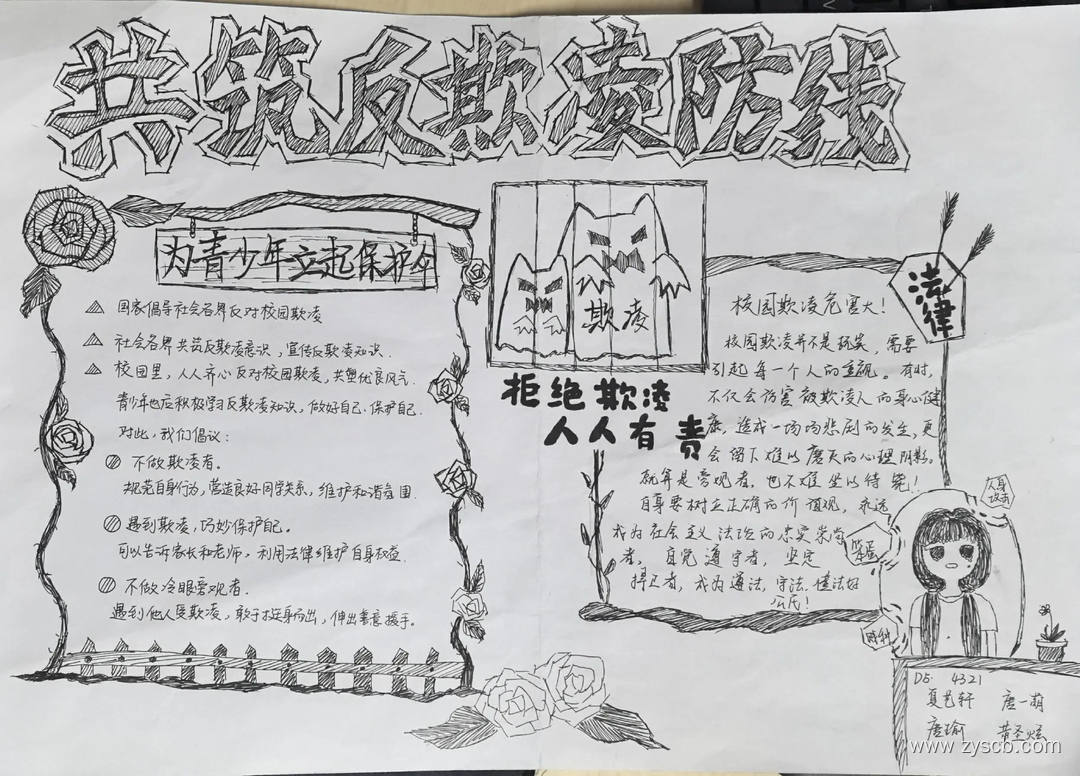 共筑反欺凌防线
为青少年立起保护伞
国家倡导社会各界反对校园欺凌
社会各界共筑反欺凌意识，宣传反欺凌知识．
校园里，人人齐心反对校园欺凌，共塑优良风气．
青少年也应积极学习反欺凌知识，做好自己．保护自己．
对此，我们倡议：
不做欺凌者。
规范自身行为，营造良好同学关系，维护和谐氛围．
遇到欺凌，巧妙保护自己。
可以告诉家长和老师，利用法律维护自身权益．
不做冷眼旁观者．
遇到他人受欺凌，敢于挺身而出，伸出善意援手。
欺凌
拒绝欺凌
人人有责
法律
校园欺凌危害大！
校园欺凌并不是玩笑，需要
引起每一个人的重视。有时，
不仅会伤害被欺凌人的身心健
康，造成一场场悲剧的发生，更
会留下难以磨灭的心理阴影。
就算是旁观者，也不难坐以待毙！
自身要树立正确的价值观，永远
成为社会主义法治的忠实崇尚
者，自觉遵守者，坚定
捍卫者，成为遵法，守法，懂法好
公民！
人身
攻击
笨蛋
D5． 4321
夏艺轩 唐一萌
唐瑜
www.zyscb.com